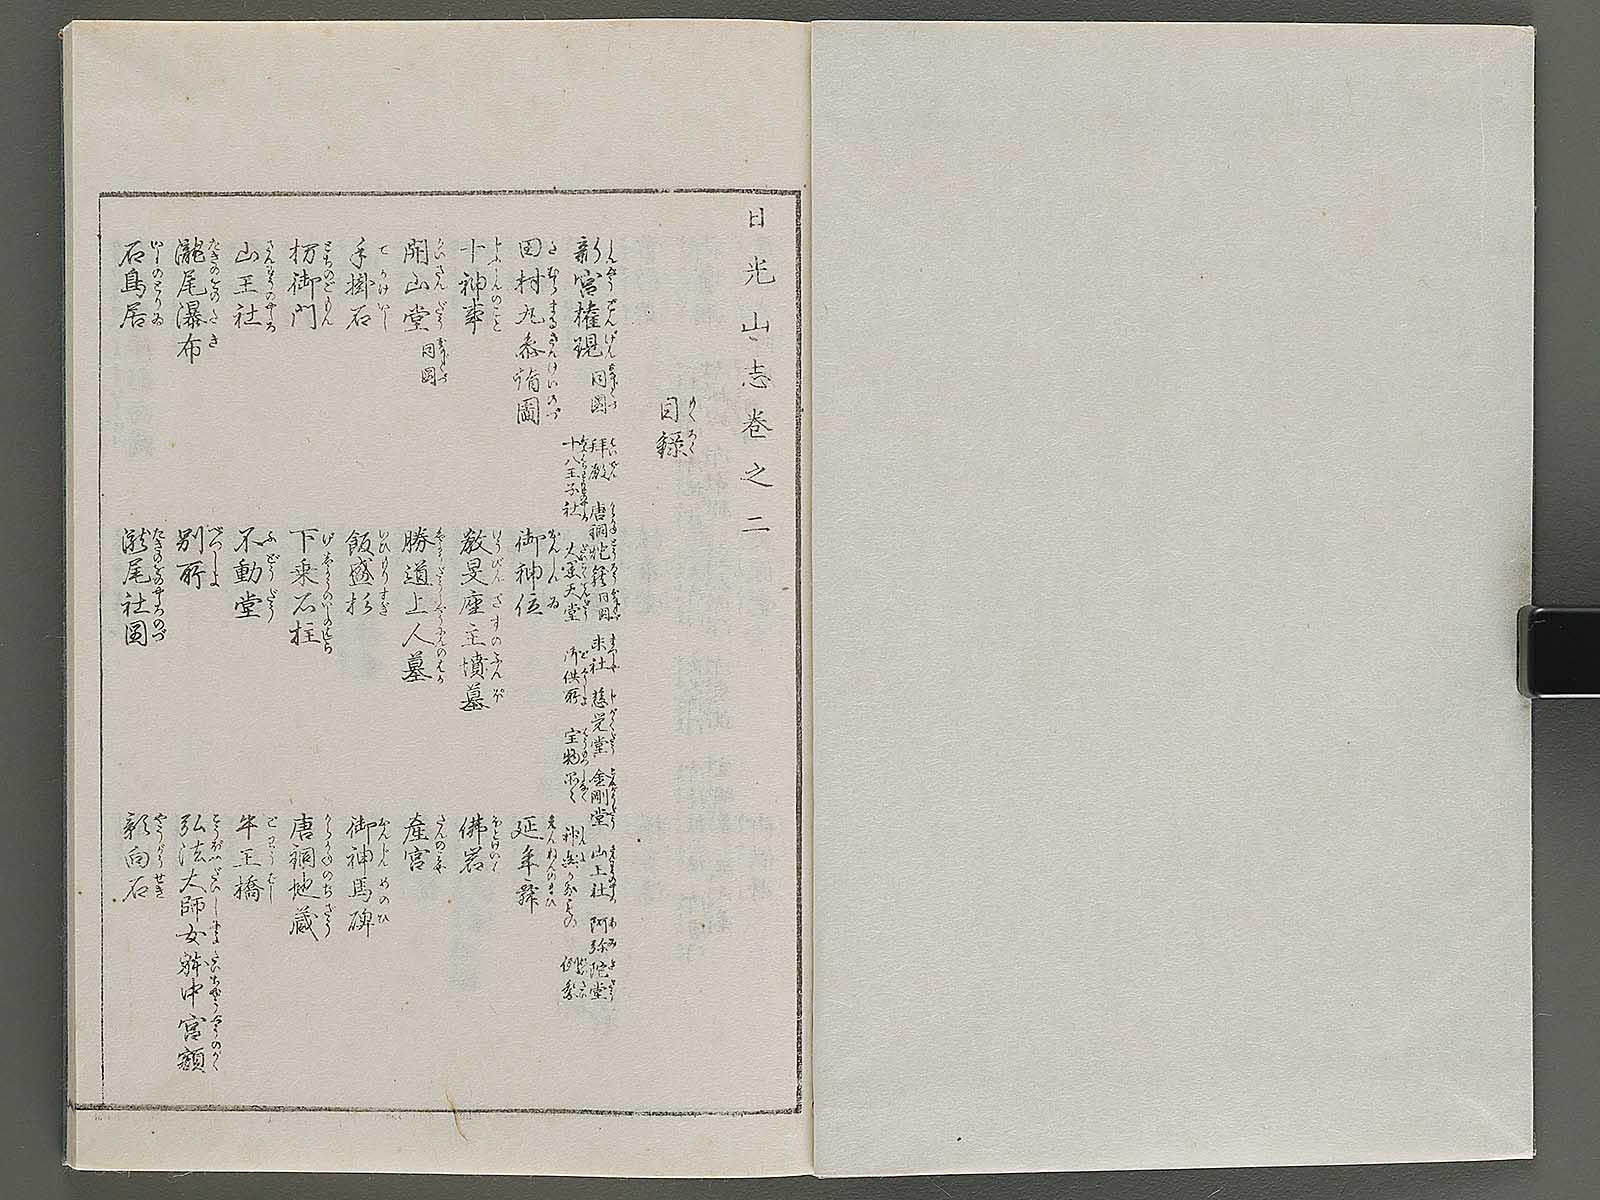 日光山志巻之二
目録
新宮権現 同図 拝殿 唐銅燈籠同図 末社 慈覚堂 金剛堂 山王社 阿弥陀堂
十八王子社 大黒天堂 御供所 宝物 神輿 例祭
田村丸参詣図 御神位 延年舞
十神事 教旻座主墳墓 佛岩
開山堂 同図 勝道上人墓 産宮
手掛石 飯盛杉 御神馬碑
枋御門 下乗石柱 唐銅地蔵
山王社 不動堂 牛王橋
瀧尾瀑布 別所 弘法大師女躰中宮額
石鳥居 瀧尾社図 影向石